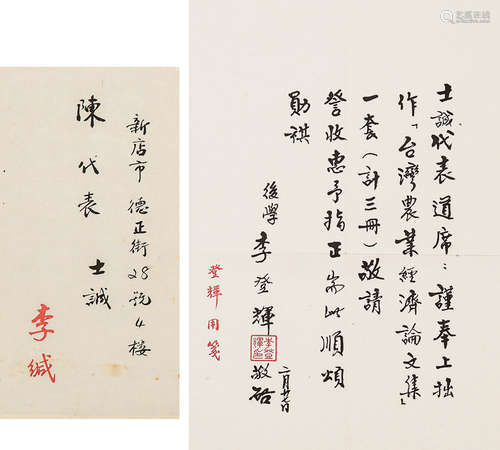 士誠代表道席：謹奉上拙
作「台灣農業經濟論文集」
一套（計三冊）敬請
詧收惠予指正耑此順頌
勛祺
後學 李登輝 敬啟
二月廿一日
登輝用箋
新店市 德正街28號4樓
陳代表 士誠
李緘